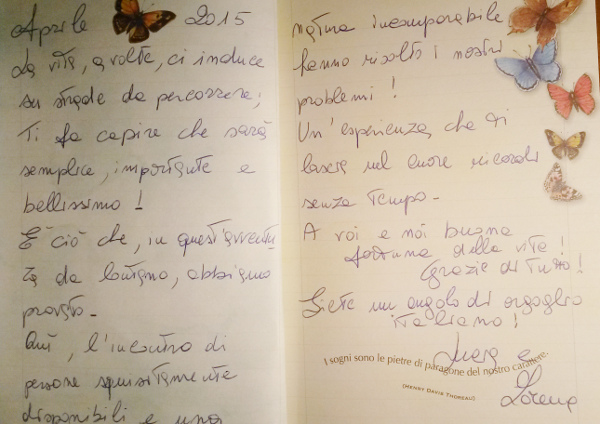 Aprile 2015
La vita, a volte, ci induce
su strade da percorrere;
Ti fa capire che sarà
semplice, importante e
bellissimo!
E' ciò che, in quest'avventu
ra da lontano, abbiamo
provato.
Qui, l'incontro di
persone squisitamente
disponibili e una
natura incomparabile
hanno risolto i nostri
problemi!
Un'esperienza che ti
lascia nel cuore ricordi
senza tempo.
A voi e noi buona
fortuna della vita!
Grazie di tutto!
Siete un angolo di orgoglio
italiano!
I sogni sono le pietre di paragone del nostro carattere.
(HENRY DAVID THOREAU)
e
Lorena